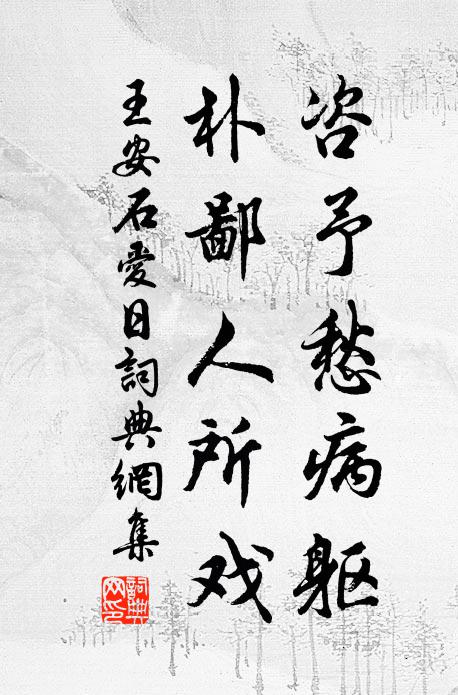 咨予愁病躯
朴鄙人所戏
王安石爱日詞典網集
詞典